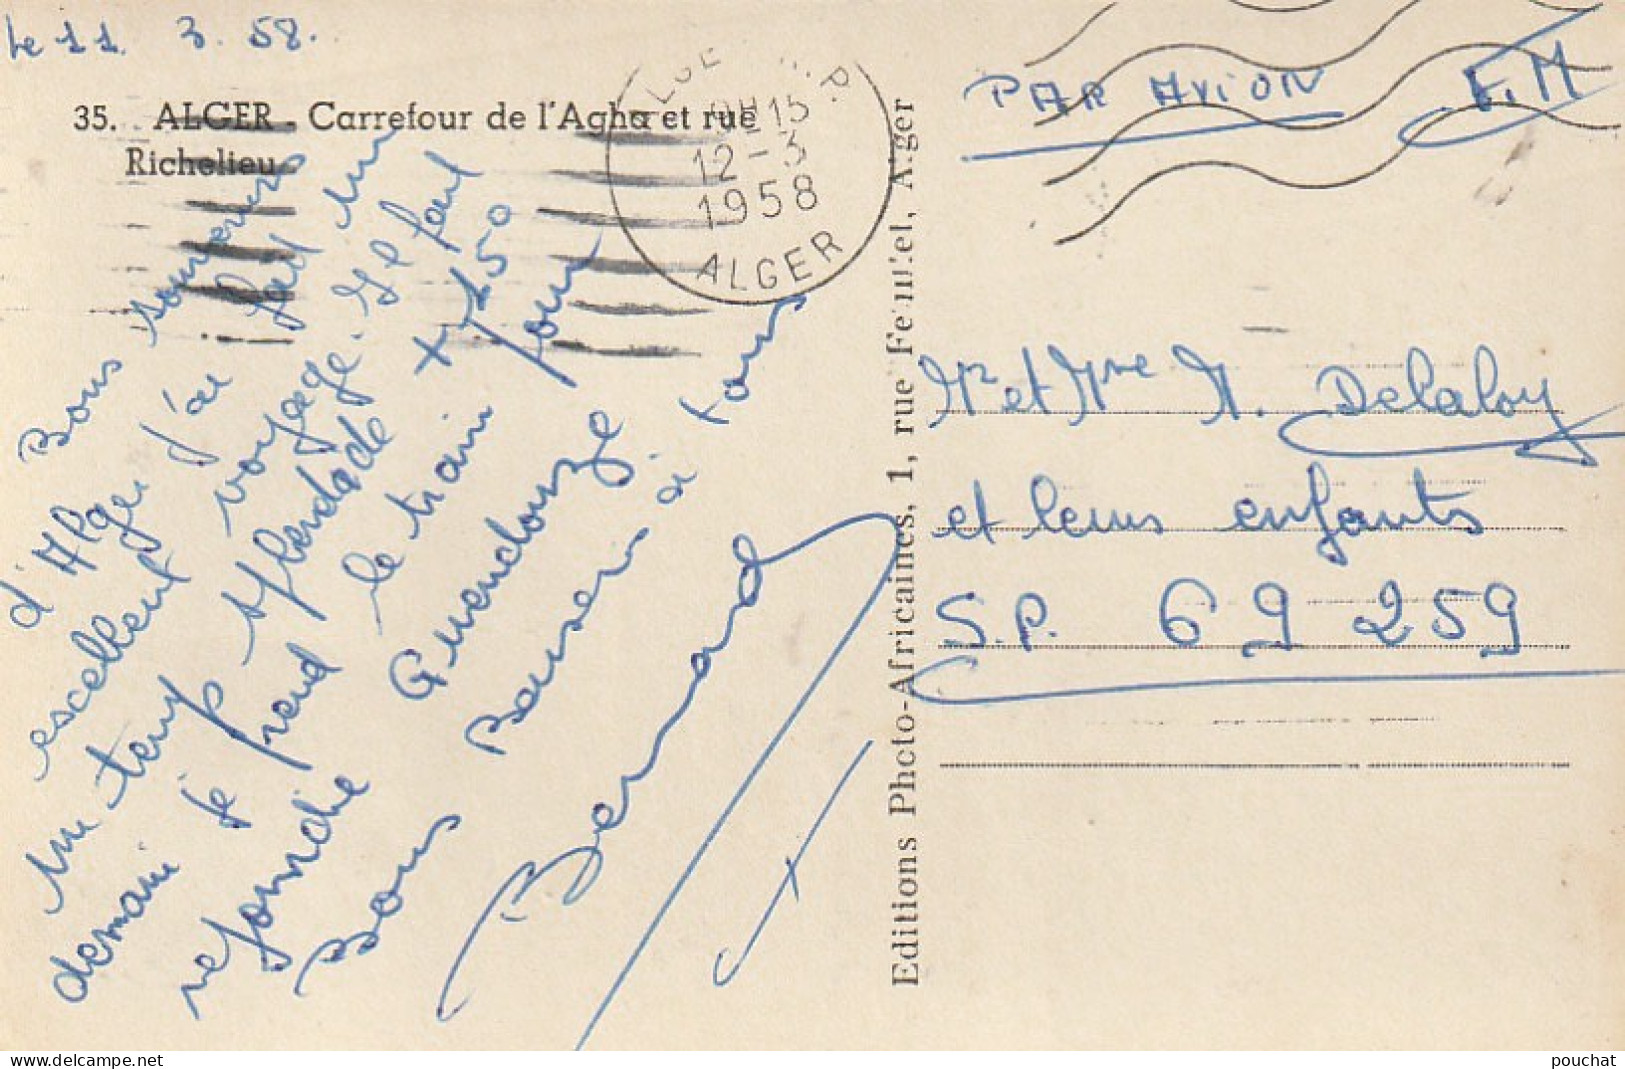 Le 11. 3. 58.
35. ALGER - Carrefour de l'Agha et rue
Richelieu
Bons souvenirs
d'Alger j'ai fait un
escellent voyage. Il fait
un temp splendade + 150
demain je prend le train pour
rejoindre Guendouze
Bons Baisers à tous
Bernard
ALGER R.P.
15
12-3
1958
ALGER
Editions Photo-Africaines, 1, rue Feuillet, Alger
PAR AVION F.M
Mr et Mme M. Delaloy
et leurs enfants
S.P. 69 259
www.delcampe.net
pouchat